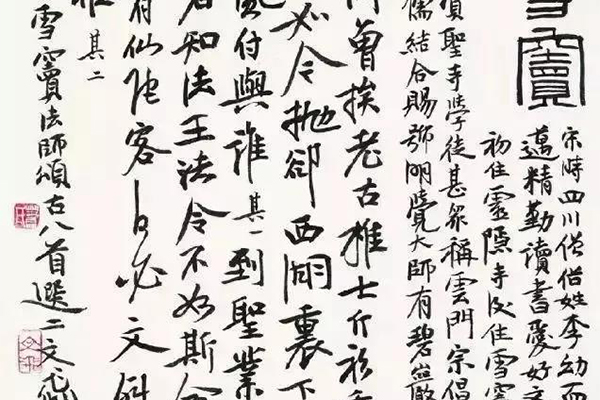 雪竇
宋時四川僧俗姓李幼而
邁精勤讀書愛好文
初住靈隱寺後住雪竇
資聖寺學徒甚眾稱雲門宗倡
儒結合賜號明覺大師有碧巖
門曾挨老古椎士
必令拋卻西湖裏下
風付與誰其一到聖業
者知法王法令不如斯會
有仙陀客何必文殊
椎其二
雪竇法師頌古八首選二文